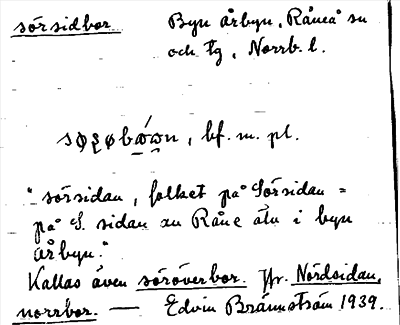 sörsidbor
Byn Årbyn, Råneå sn
och tg, Norrb. l.
bf. m. pl.
"sörsidan, folket på Sörsidan =
på S. sidan av Råne älv i byn
Årbyn."
Kallas även söröverbor. Jfr. Nördsidan,
norrbor. — Edvin Brännström 1939.